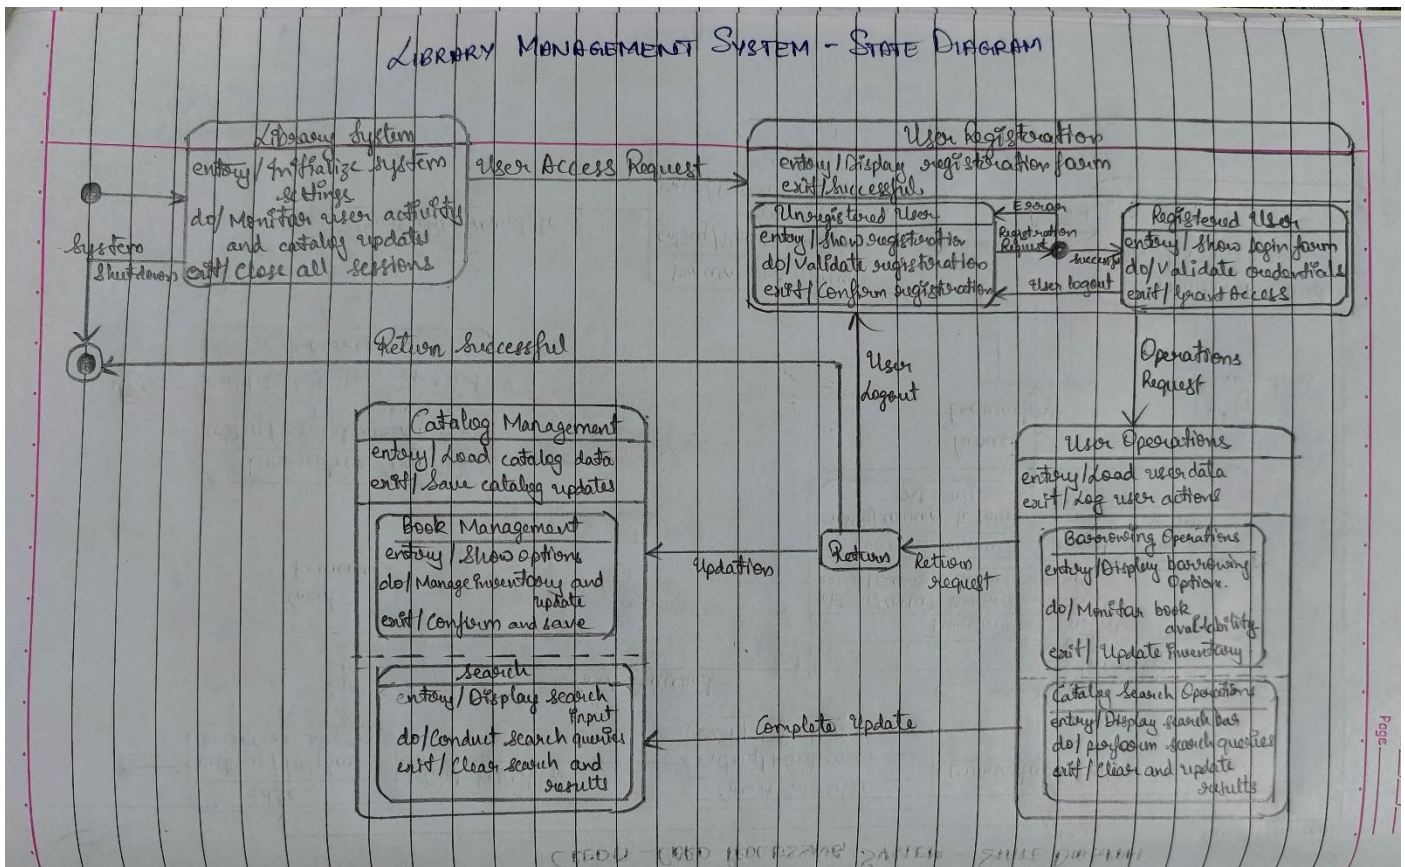 LIBRARY MANAGEMENT SYSTEM - STATE DIAGRAM
Library System
entry/Initialize system
settings
do/Monitor user activity
and catalog updates
exit/Close all sessions
System
Shutdown
User Access Request
User Registration
entry/Display registration form
exit/Successful
Unregistered User
entry/Show registration
do/Validate registration
exit/Confirm registration
Error
Registration
Request
Success
User logout
Registered User
entry/Show login form
do/Validate credentials
exit/Grant Access
Return Successful
User
Logout
Operations
Request
Catalog Management
entry/Load catalog data
exit/Save catalog updates
Book Management
entry/Show options
do/Manage Inventory and
update
exit/Confirm and save
Search
entry/Display search
input
do/Conduct search queries
exit/Clear search and
results
Updation
Return
Return
request
Complete Update
User Operations
entry/Load user data
exit/Log user actions
Borrowing Operations
entry/Display borrowing
option.
do/Monitor book
availability
exit/Update inventory
Catalog Search Operations
entry/Display search bar
do/perform search queries
exit/Clear and update
results
Page